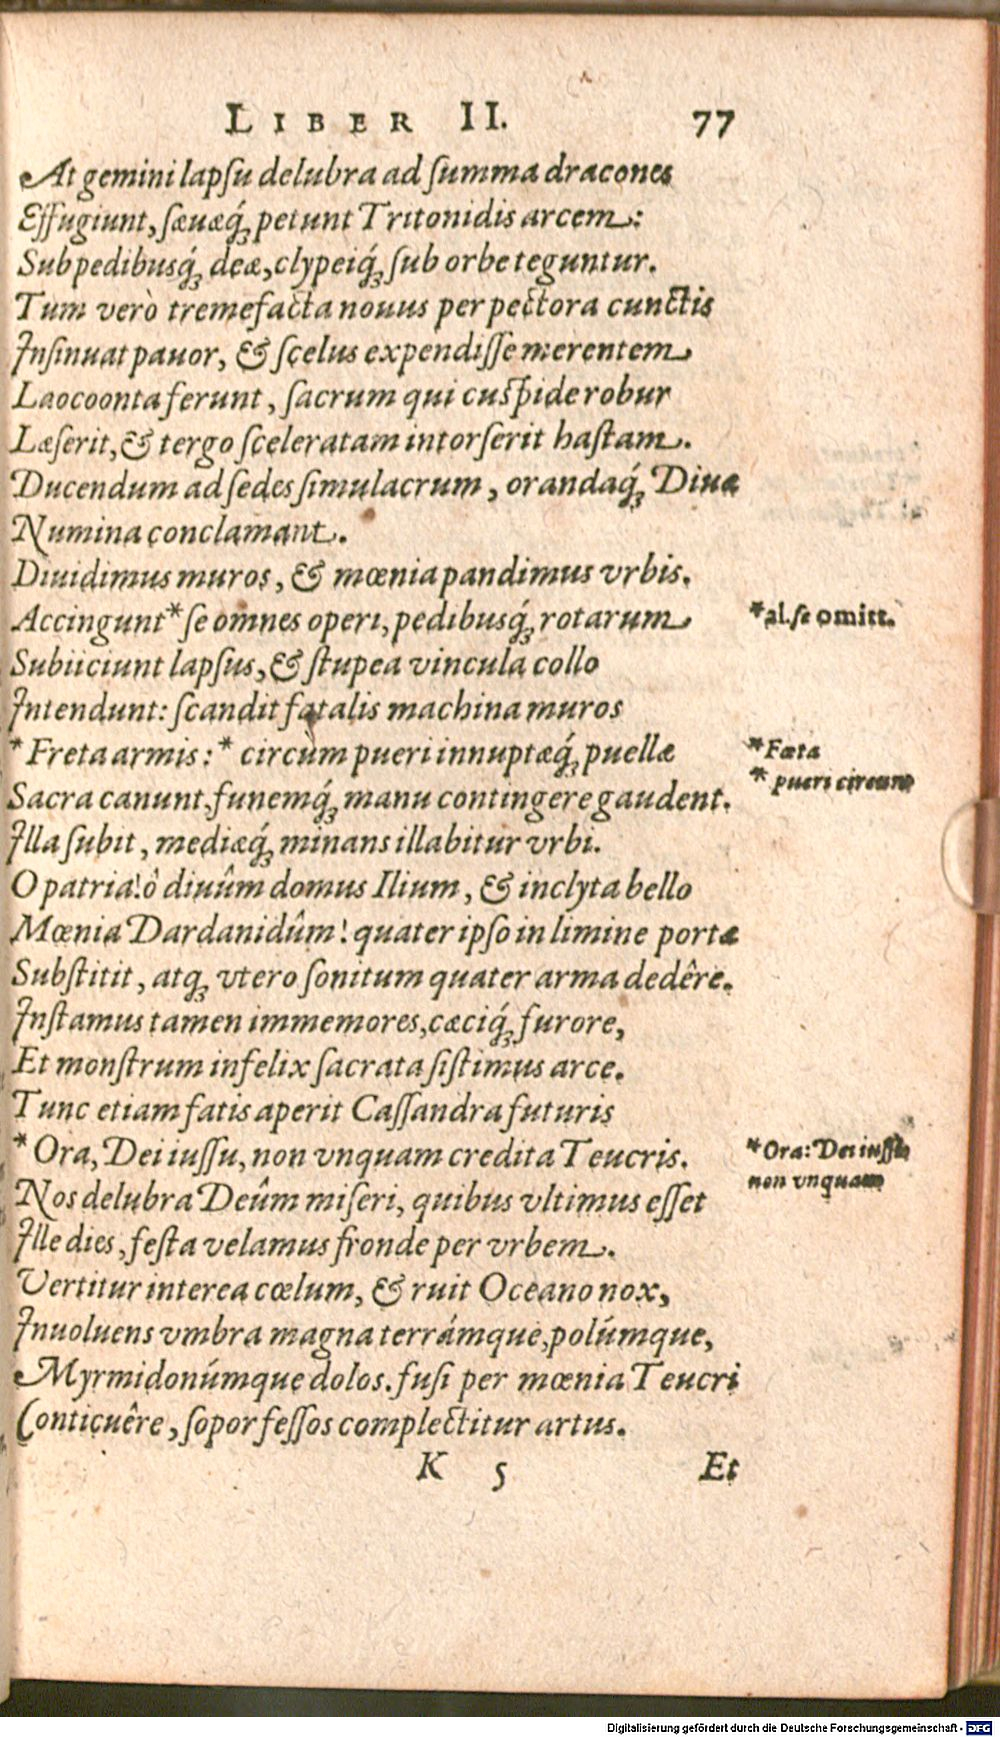 LIBER II. 77
At gemini lapſu delubra ad ſumma dracones
Effugiunt, ſæuæq́; petunt Tritonidis arcem:
Sub pedibusq́; deæ, clypeiq́; ſub orbe teguntur.
Tum verò tremefacta nouus per pectora cunctis
Inſinuat pauor, & ſcelus expendiſſe merentem
Laocoonta ferunt, ſacrum qui cuſpide robur
Læſerit, & tergo ſceleratam intorſerit haſtam.
Ducendum ad ſedes ſimulacrum, orandaq́; Diuæ
Numina conclamant.
Diuidimus muros, & mœnia pandimus vrbis.
Accingunt* ſe omnes operi, pedibusq́; rotarum
*al. ſe omitt.
Subiiciunt lapſus, & ſtupea vincula collo
Intendunt: ſcandit fatalis machina muros
*Freta armis: * circùm pueri innuptæq́; puellæ
*Fœta
* pueri circum
Sacra canunt, funemq́; manu contingere gaudent.
Illa ſubit, mediæq́; minans illabitur vrbi.
O patria! ô diuûm domus Ilium, & inclyta bello
Mœnia Dardanidûm! quater ipſo in limine portæ
Subſtitit, atq; vtero ſonitum quater arma dedêre.
Inſtamus tamen immemores, cæciq́; furore,
Et monſtrum infelix ſacrata ſiſtimus arce.
Tunc etiam fatis aperit Caſſandra futuris
*Ora, Dei iuſſu, non vnquam credita Teucris.
*Ora: Dei iuſſu
non vnquam
Nos delubra Deûm miſeri, quibus vltimus eſſet
Ille dies, feſta velamus fronde per vrbem.
Vertitur interea cœlum, & ruit Oceano nox,
Inuoluens vmbra magna terrámque, polúmque,
Myrmidonúmque dolos. fuſi per mœnia Teucri
Conticuêre, ſopor feſſos complectitur artus.
K 5 Et
Digitalisierung gefördert durch die Deutsche Forschungsgemeinschaft - DFG